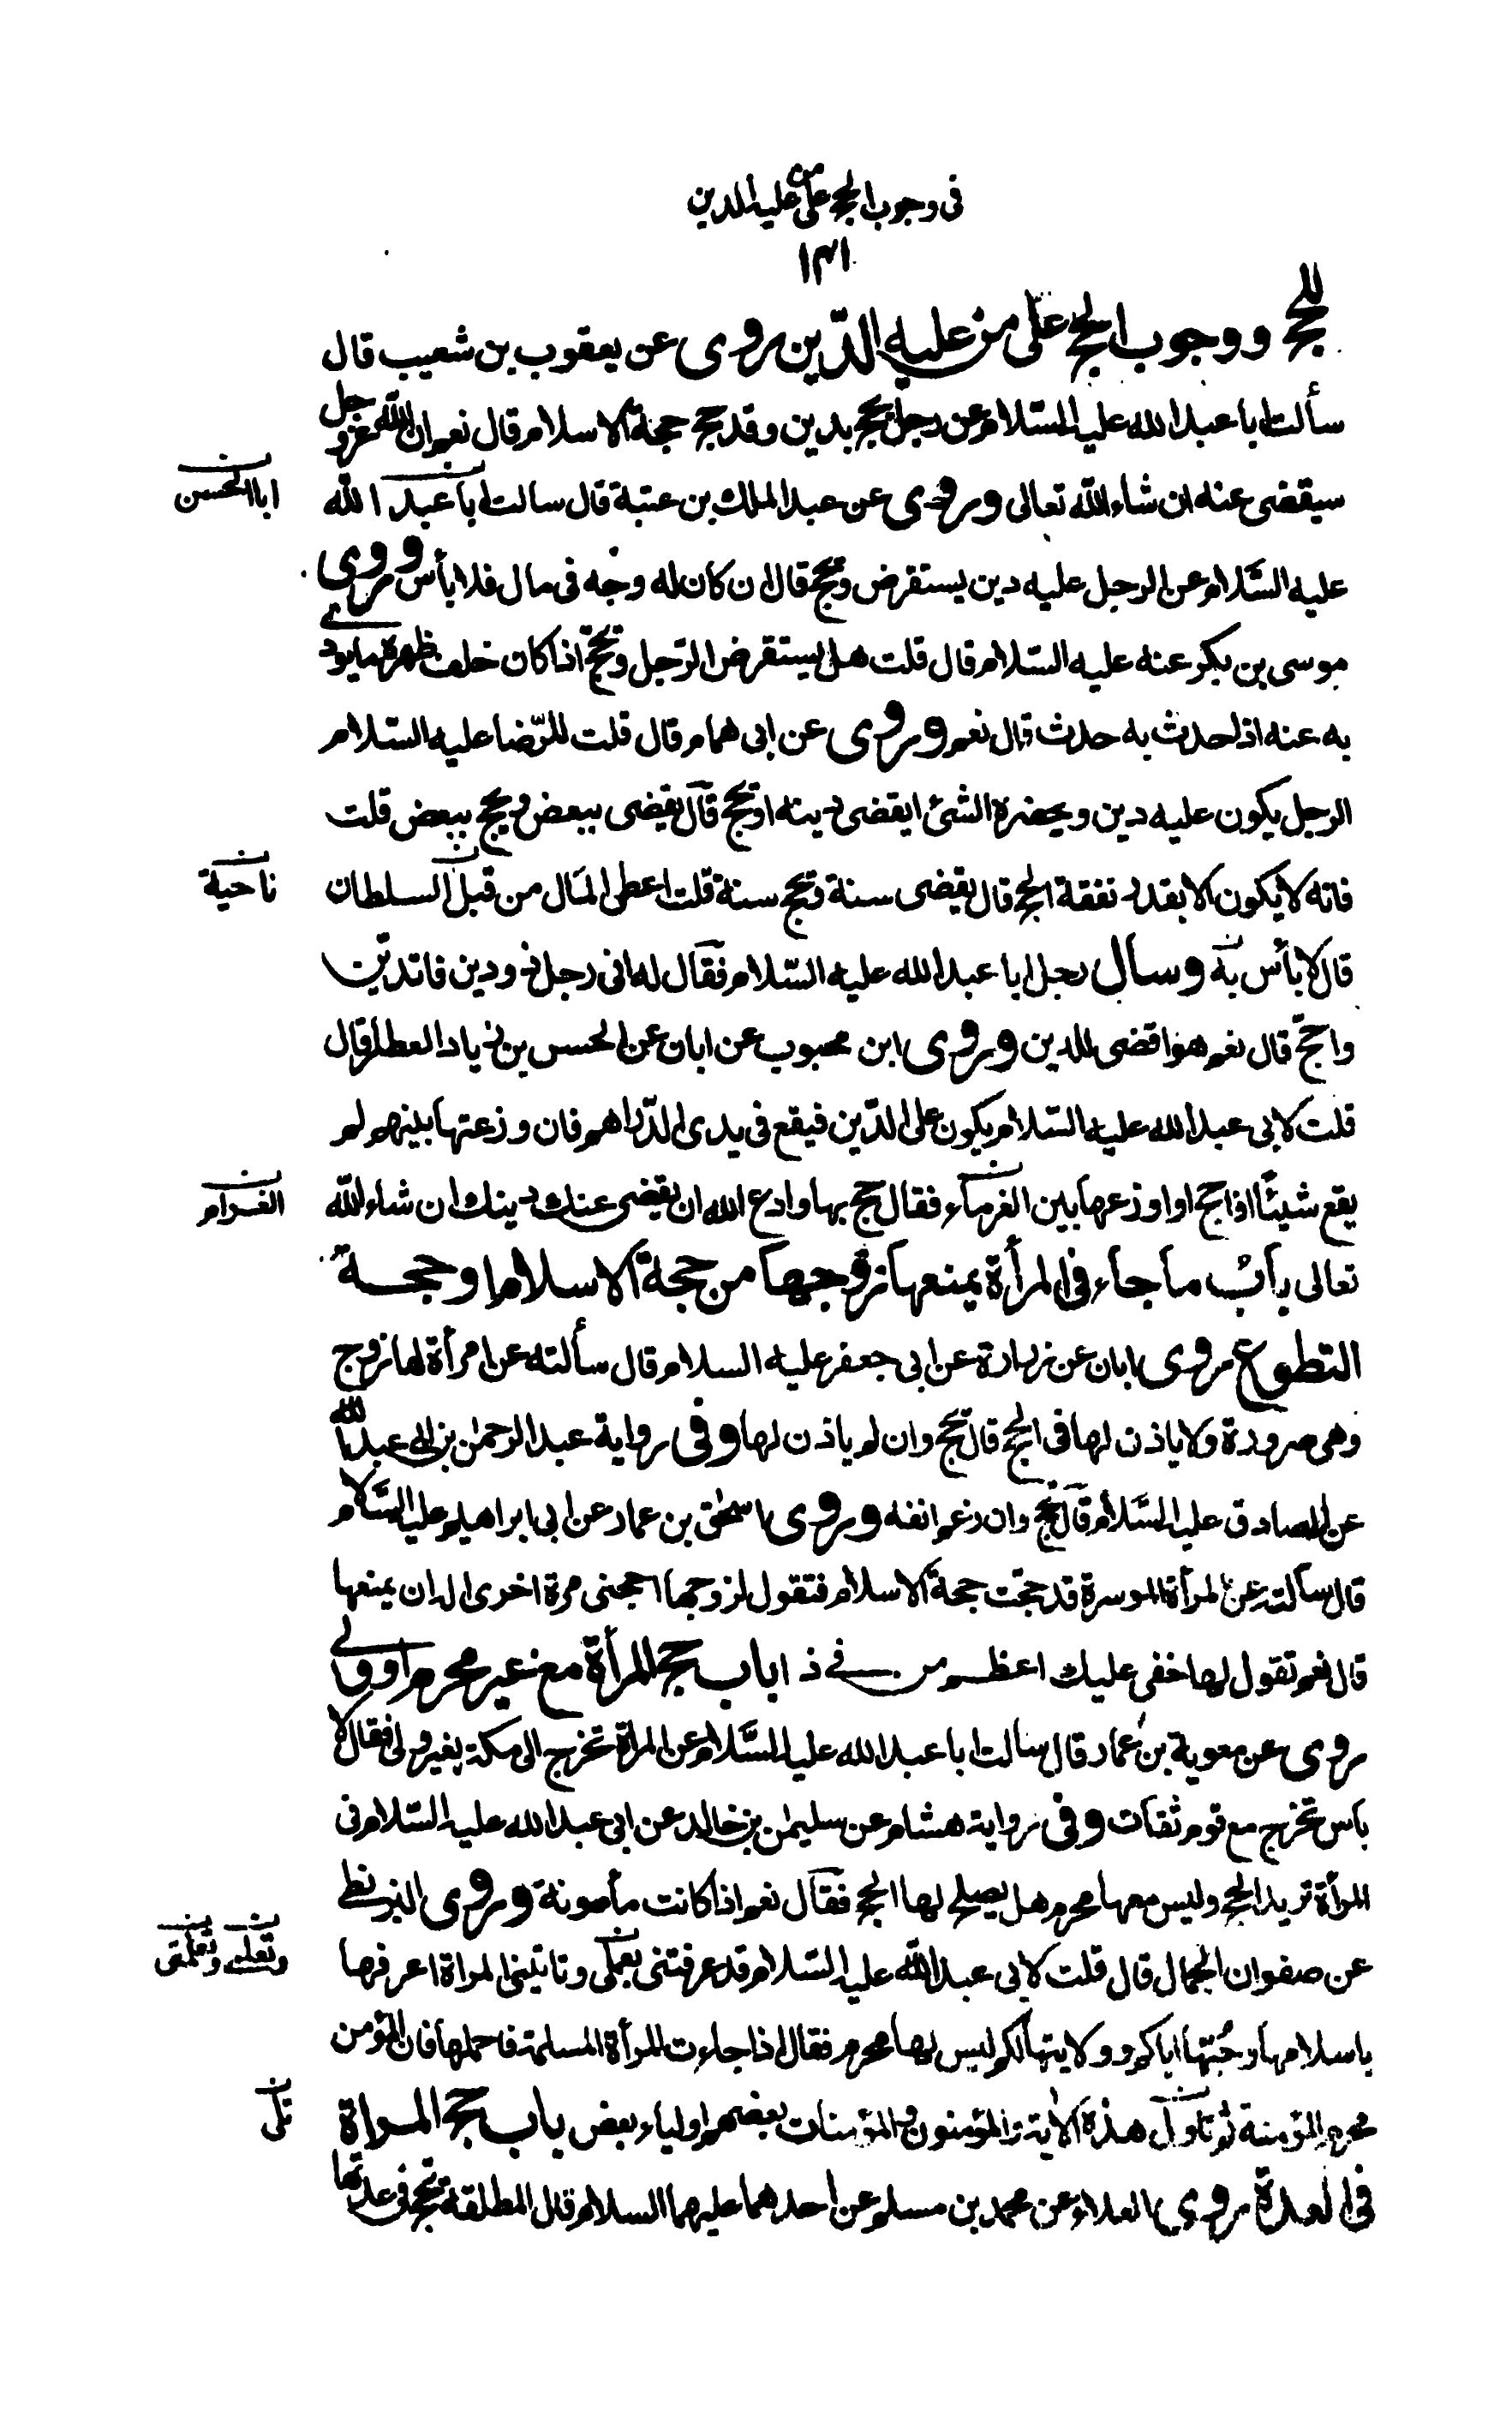 فى وجوب الحج على من عليه الدين
١٣١
للحج ووجوب الحج على من عليه الدّين روى عن يعقوب بن شعيب قال
سألت ابا عبد الله عليه السّلام عن رجل يحج بدين وقد حج حجة الاسلام قال نعم ان الله عز وجل
سيقضى عنه ان شاء الله تعالى وروى عن عبد الملك بن عتبة قال سالت ابا عبد الله
ابا الحسن
عليه السَّلام عن الرجل عليه دين يستقرض ويحج قال ان كان له وجه فى مال فلا بأس وروى
موسى بن بكر عنه عليه السّلام قال قلت هل يستقرض الرّجل ويحجّ اذا كان خلف ظهره ما يودى
به عنه اذا حدث به حدث قال نعم وروى عن ابى همام قال قلت للرّضا عليه السّلام
الرجل يكون عليه دين ويحضره الشئ ايقضى دينه او يحج قال يقضى ببعض ويحج ببعض قلت
فانه لا يكون الا بقدر نفقة الحج قال يقضى سنة ويحج سنة قلت اعطى المال من قبل السلطان
ناحية
قال لا بأس به وسال رجل ابا عبد الله عليه السّلام فقال له انى رجل ذو دين فاتديّن
واحجّ قال نعم هو اقضى للدين وروى ابن محبوب عن ابان عن الحسن بن زياد العطار قال
قلت لابى عبد الله عليه السّلام يكون على الدّين فيقع فى يدى الدّراهم فان وزعتها بينهم لم
يقع شيئًا افاحج او اوزعها بين الغرماء فقال حج بها وادع الله ان يقضى عنك دينك ان شاء الله
الغرام
تعالى بابُ ما جاء فى المرأة يمنعها زوجها من حجة الاسلام او حجة
التطوع روى ابان عن زرارة عن ابى جعفر عليه السلام قال سألته عن امرأة لها زوج
وهى صرورة ولا ياذن لها فى الحج قال تحج وان لم ياذن لها وفى رواية عبد الرحمن بن ابى عبد الله
عن الصادق عليه السَّلام قال تحج وان رغم انفه وروى اسحق بن عمار عن ابى ابراهيم عليه السَّلام
قال سألته عن المرأة الموسرة قد حجّت حجة الاسلام فتقول لزوجها احجنى مرة اخرى اله ان يمنعها
قال نعم تقول لها حقى عليك اعظم من فى ذا باب حج المرأة مع غير محرم او ولى
روى عن معوية بن عمار قال سالت ابا عبد الله عليه السَّلام عن المراة تخرج الى مكة بغير ولى فقال لا
باس تخرج مع قوم ثقات وفى رواية هشام عن سليمن بن خالد عن ابى عبد الله عليه السّلام فى
المرأة تريد الحج وليس معها محرم هل يصلح لها الحج فقال نعم اذا كانت مأمونة وروى البزنطى
عن صفوان الجمال قال قلت لابى عبد الله عليه السّلام قد عرفتنى بعملى وتاتينى المراة اعرفها
باسلامها وحُبّها اياكم وولايتها لكم ليس لها محرم فقال اذا جاءت المرأة المسلمة فاحملها فان المؤمن
محرم المؤمنة ثم تاول هذه الاية والمؤمنون والمؤمنات بعضهم اولياء بعض باب حج المراة
تلى
فى العدة روى العلاء عن محمد بن مسلم عن احدهما عليهما السلام قال المطلقة تحج فى عدتها